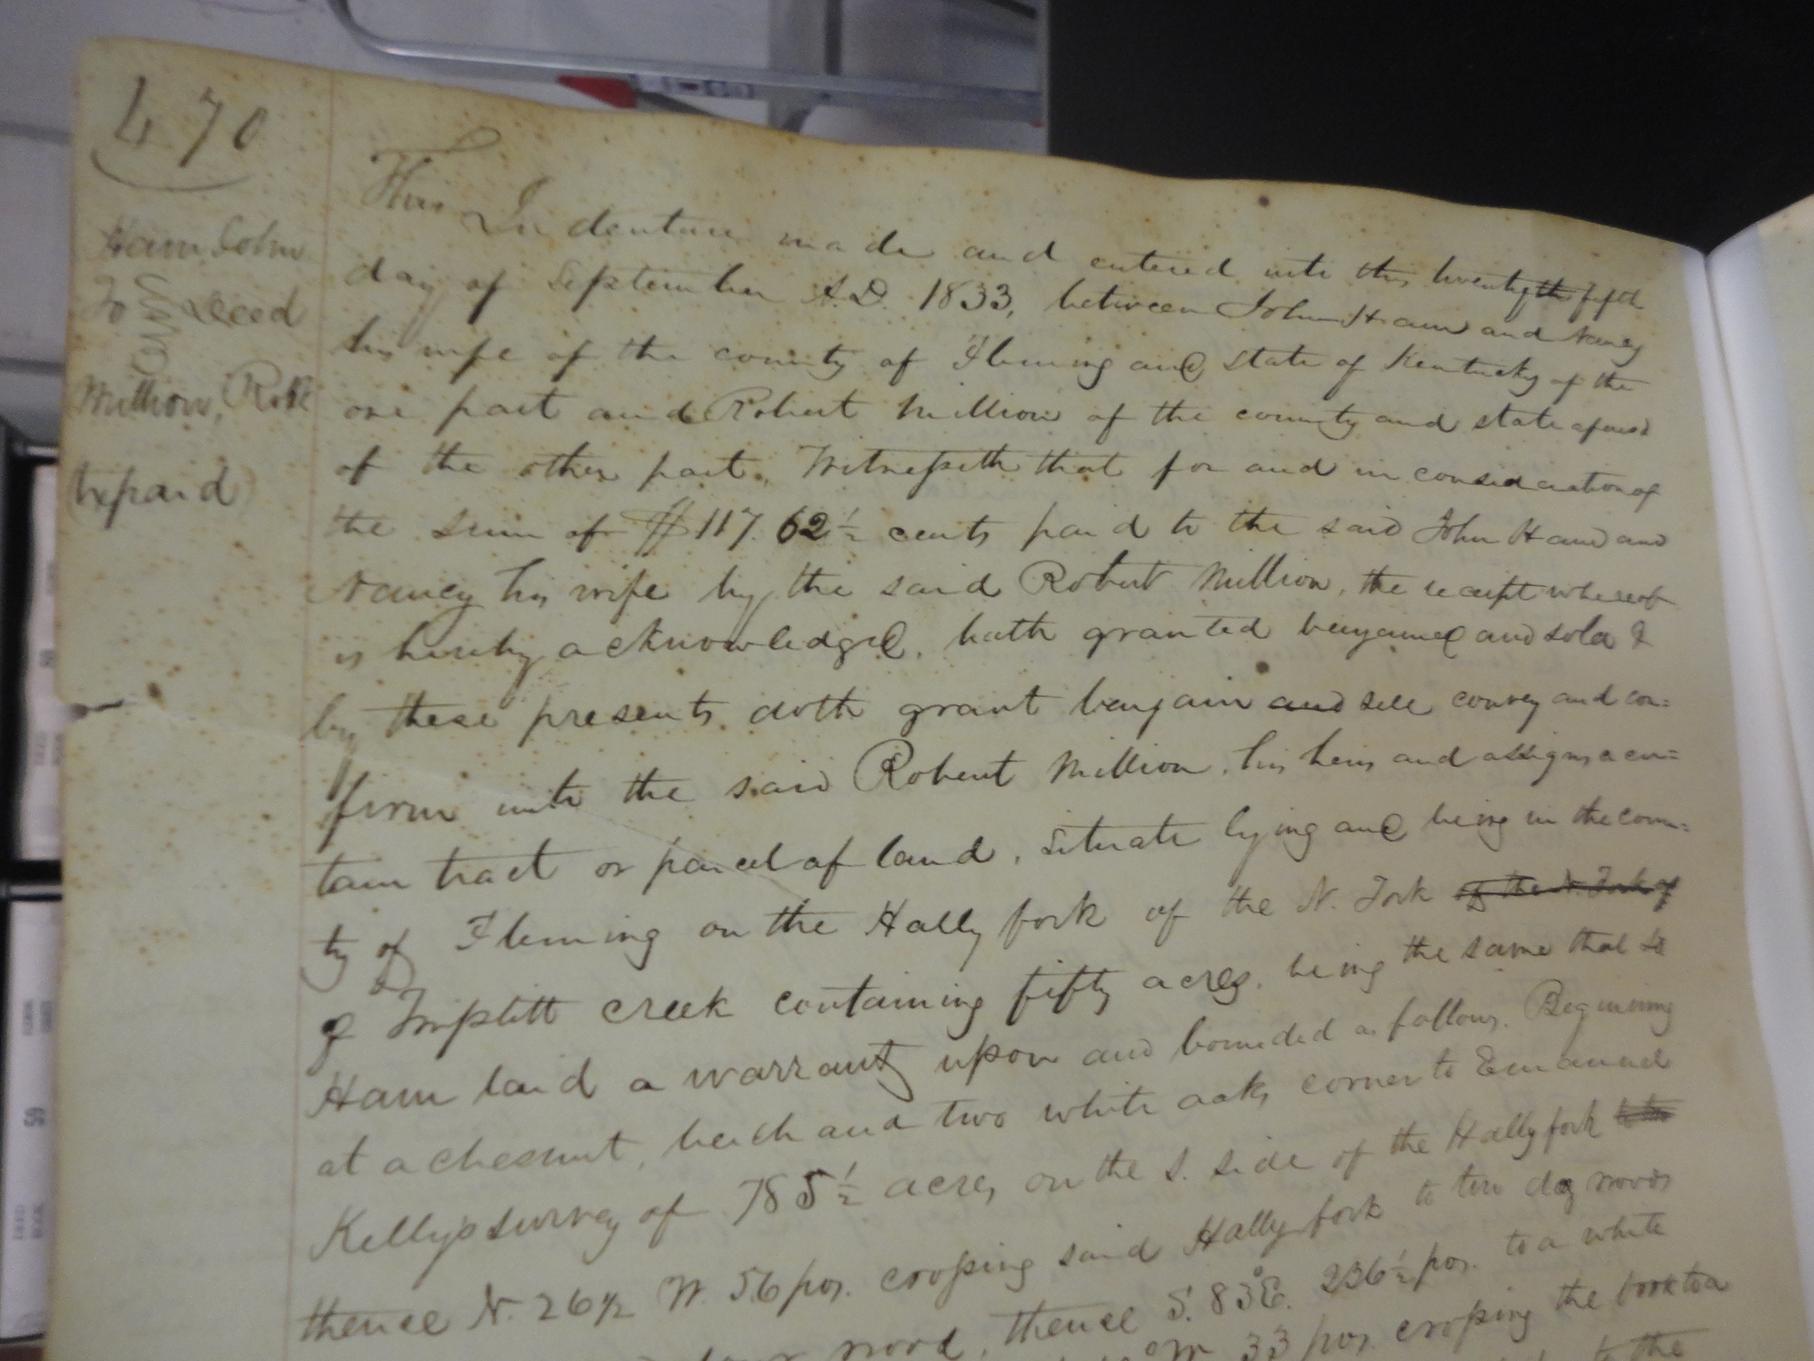 470
Ham John
To Deed
Million, Robt
(Expaid)
This Indenture made and entered into this twentyfth fifth
day of September A.D. 1833, between John Ham and Nancy
his wife of the county of Fleming and state of Kentucky of the
one part and Robert Million of the county and state aforesd
of the other part, Witnesseth that for and in consideration of
the sum of $117.62½ cents paid to the said John Ham and
Nancy his wife by the said Robert Million, the receipt whereof
is hereby acknowledged, hath granted bargained and sold &
by these presents doth grant bargain and sell convey and con=
firm unto the said Robert Million, his heirs and assigns a cer=
tain tract or parcel of land, situate lying and being in the coun=
ty of Fleming on the Hally fork of the N. Fork of the N. Fork of
of Triplitt creek containing fifty acres, being the same that sd
Ham laid a warrant upon and bounded as follows. Begining
at a chesnut, beech and two white oaks corner to Emanuel
Kelly's survey of 785½ acres, on the S. side of the Hally fork
thence N. 26½ W. 56 pos. crossing said Hally fork to two dog woods
wood, thence S. 83° E. 236½ pos. to a white
W 33 pos. crossing the fork to a
to the